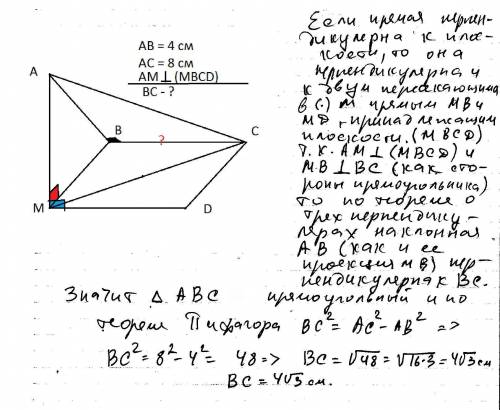 AB = 4 см
AC = 8 см
AM⊥(MBCD)
BC - ?
A
B
?
C
M
D
Если прямая перпен-
дикулярна к плос-
кости, то она
перпендикулярна и
к двум пересекающимся
в (.) М прямым МВ и
МD, принадлежащим
плоскости. (МВСD)
Т.К. АМ⊥(МВСD) и
МВ⊥ВС (как сто-
роны прямоугольника)
то по теореме о
трех перпендику-
лярах наклонная
АВ (как и ее
проекция МВ) пер-
пендикулярна к ВС.
Значит △ АВС прямоугольный и по
теореме Пифагора BC² = AC² - AB² =>
BC² = 8² - 4² = 48 => BC = √48 = √16·3 = 4√3 см
BC = 4√3 см.